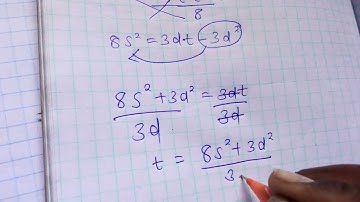 8
8s² = 3dt - 3d²
8s² + 3d² = 3dt
3d 3d
t = 8s² + 3d²
3